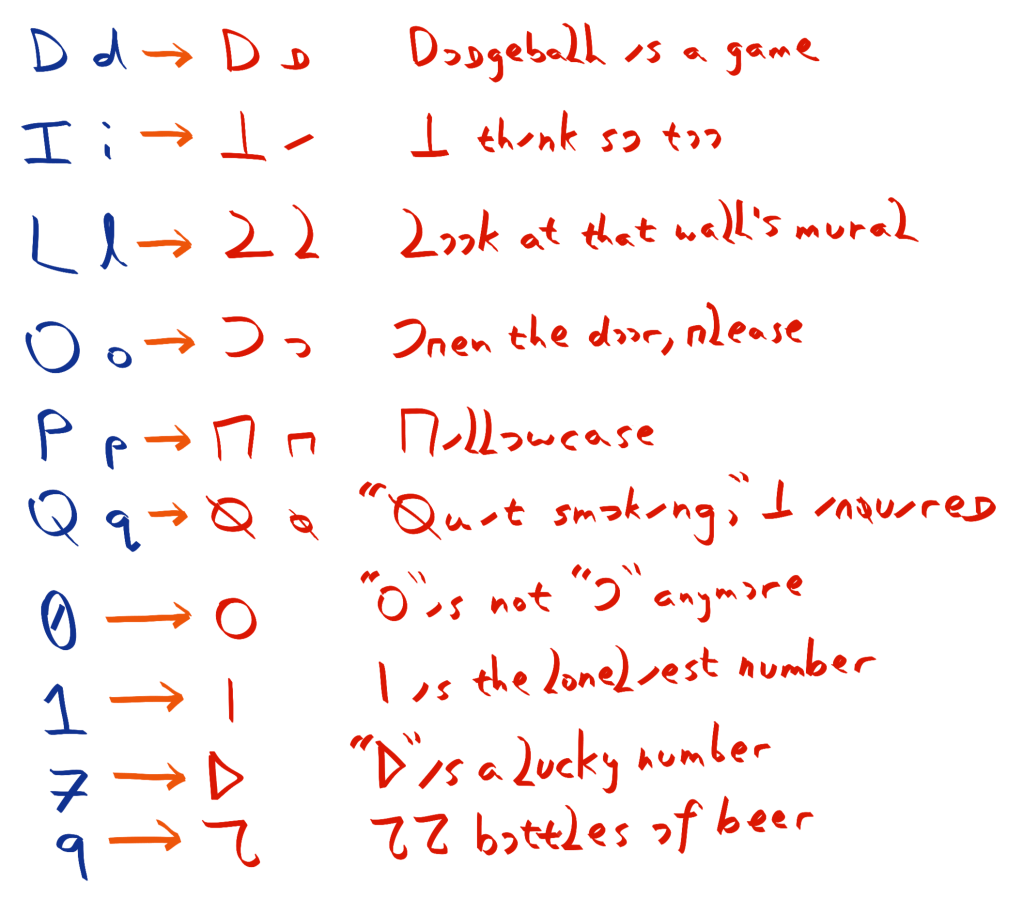 D d → D ᴅ Dodgeball is a game
I i → ⊥ ⸝ I think so too
L l → 2 2 Look at that wall's mural
O o → Ɔ ɔ Open the door, please
P p → Π п Pillowcase
Q q → Ø ø "Quit smoking," I inquired
0 → O "0" is not "O" anymore
1 → | 1 is the loneliest number
7 → ▷ "7" is a lucky number
9 → Ղ 99 bottles of beer